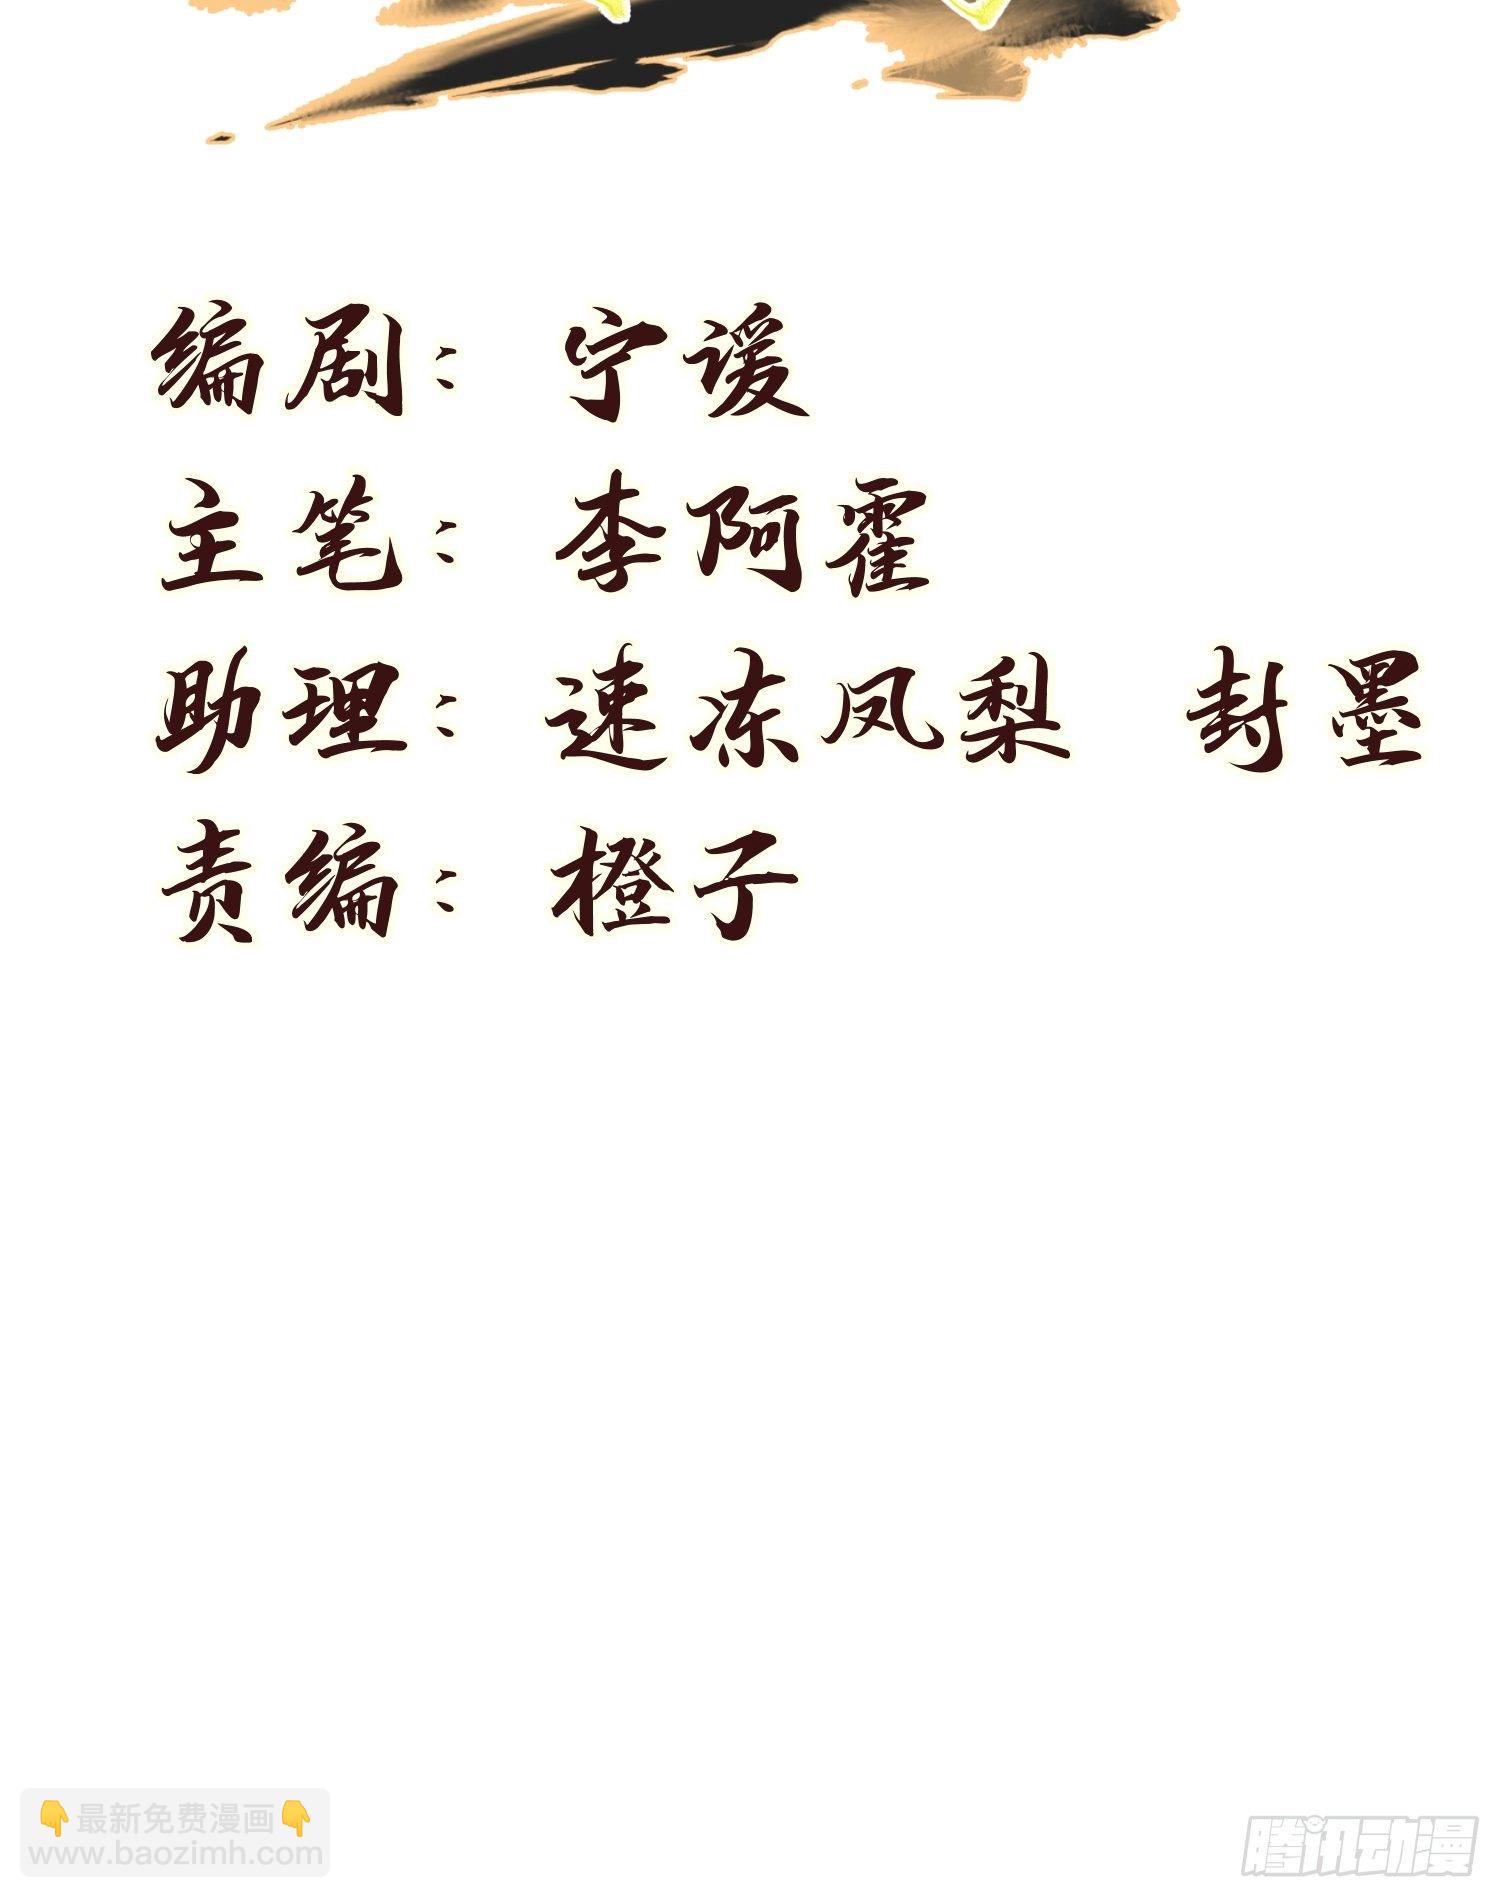 编剧：宁谖
主笔：李阿霍
助理：速冻凤梨 封墨
责编：橙子
👇最新免费漫画👇
www.baozimh.com
腾讯动漫